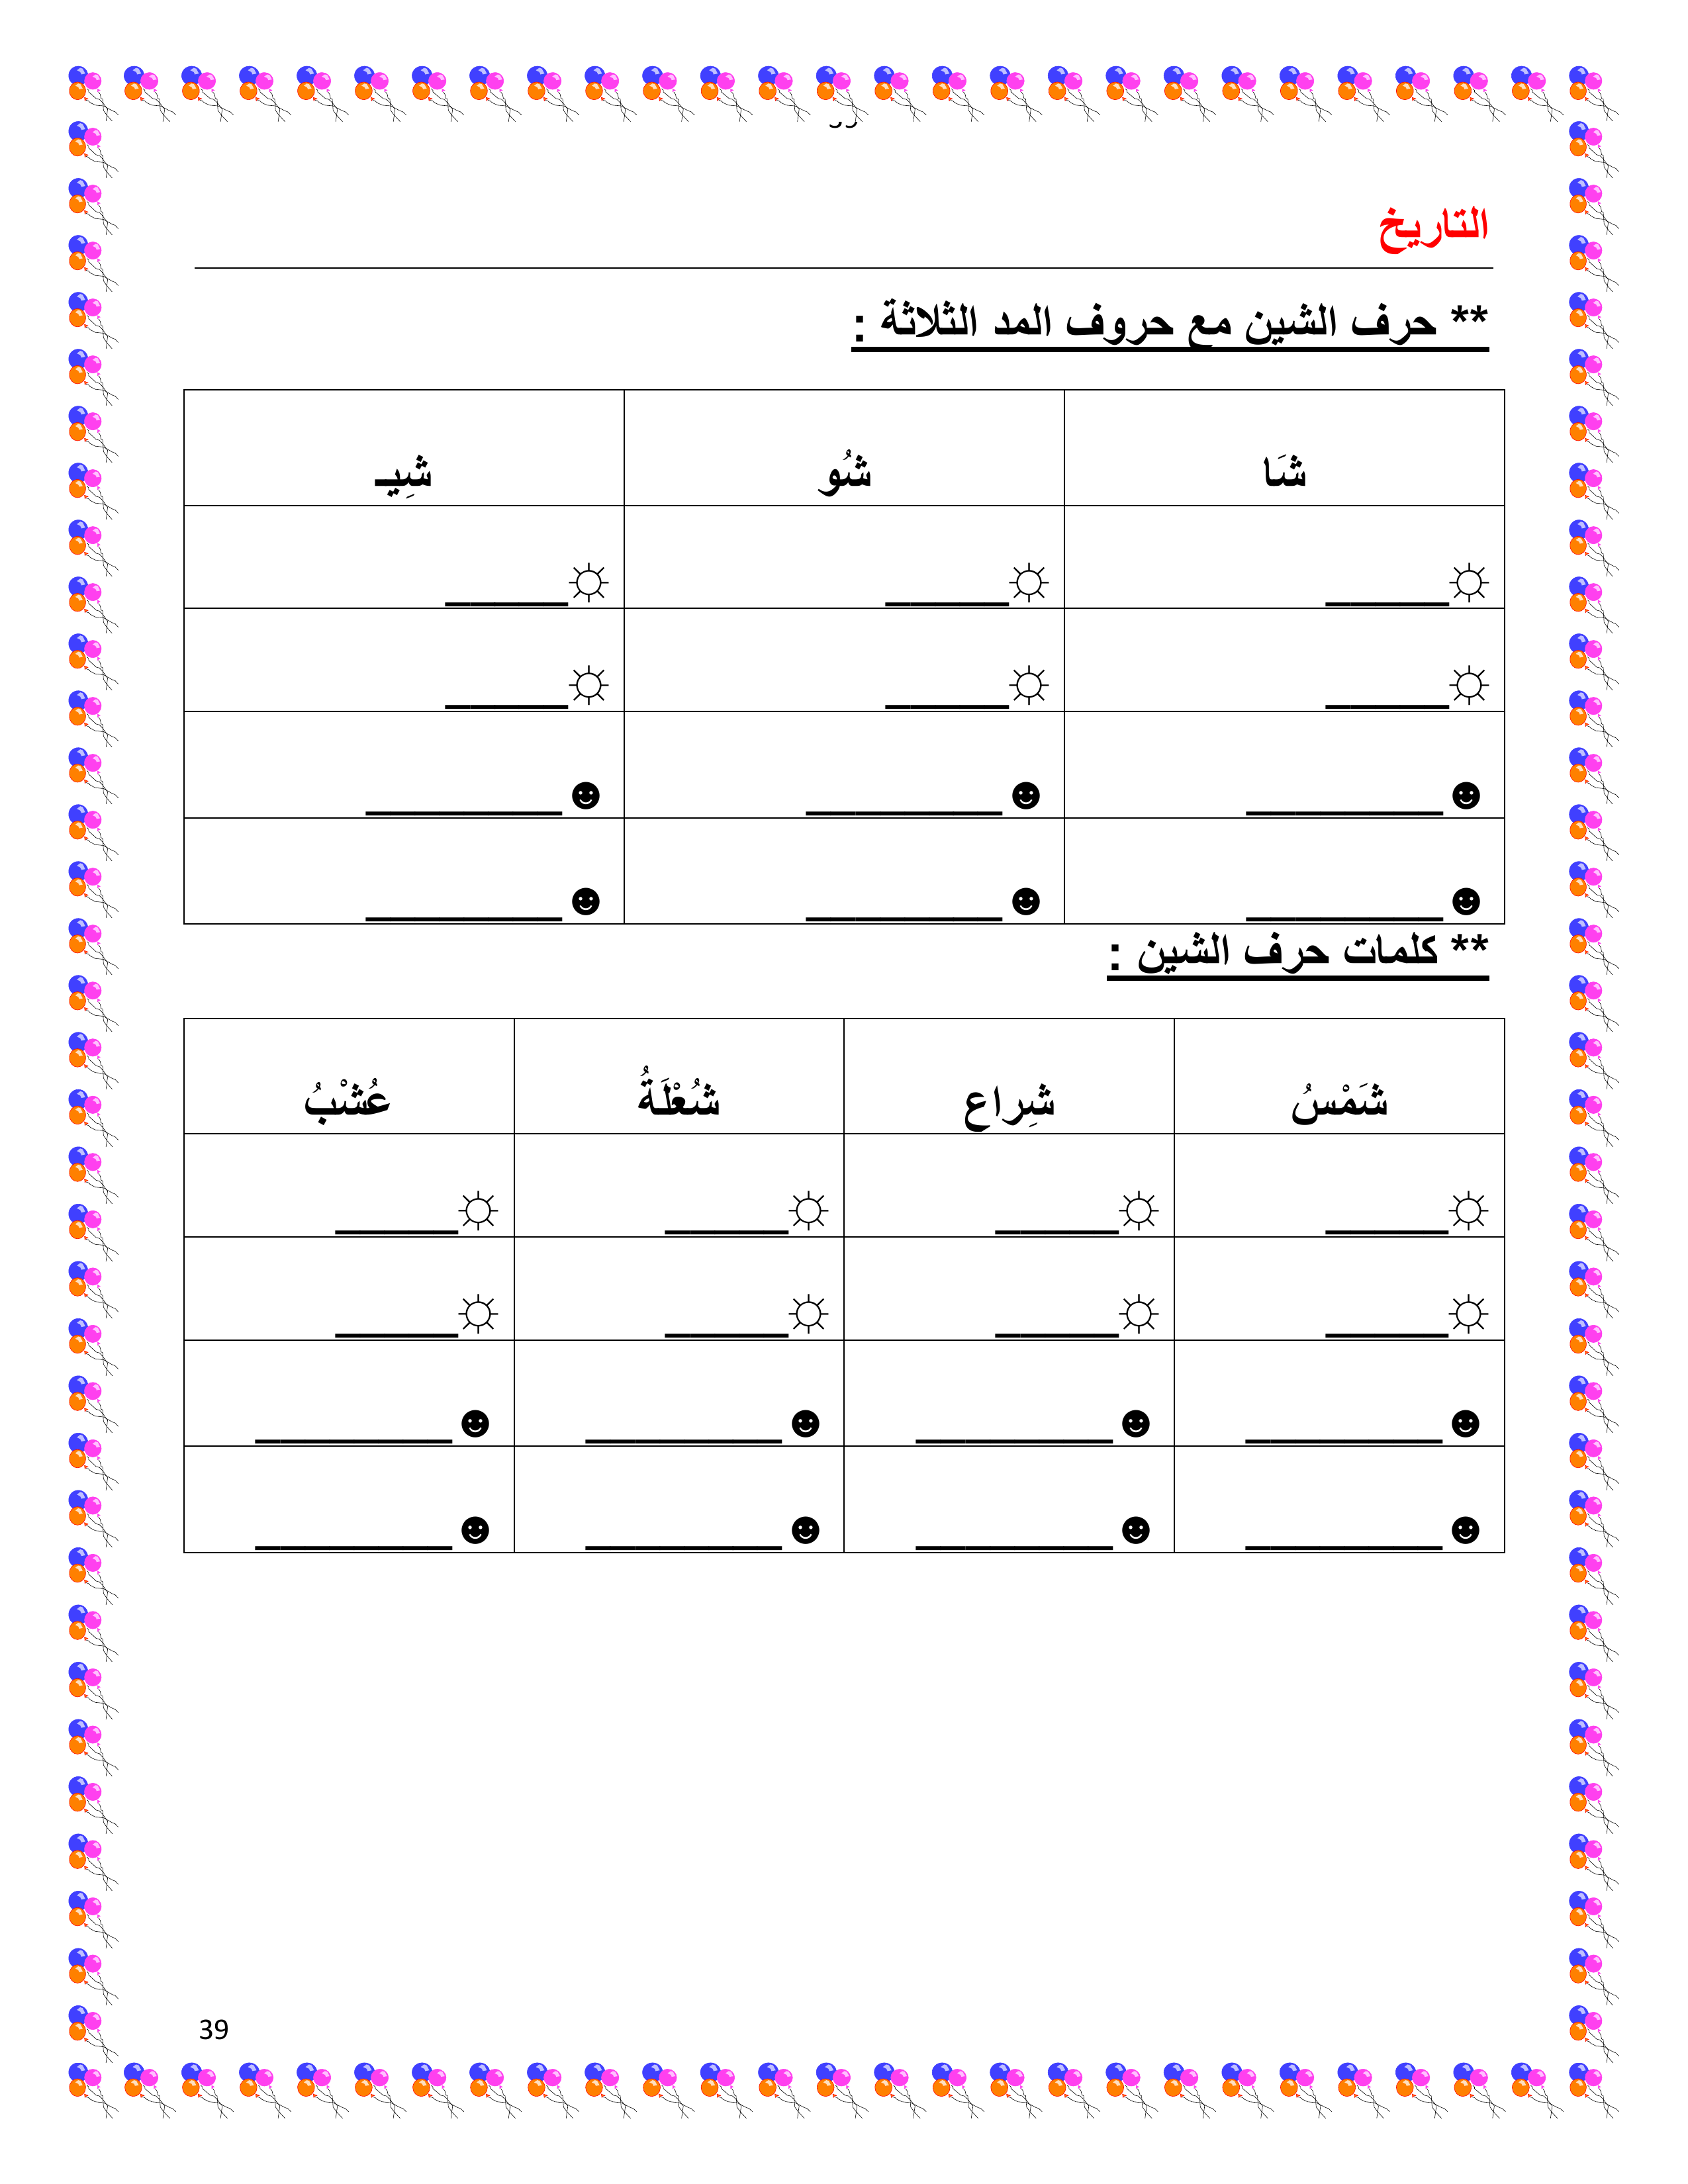 التاريخ
** حرف الشين مع حروف المد الثلاثة :
شَا شُو شِيـ
☼_____ ☼_____ ☼_____
☼_____ ☼_____ ☼_____
☻________ ☻________ ☻________
☻________ ☻________ ☻________
** كلمات حرف الشين :
شَمْسُ شِراع شُعْلَةُ عُشْبُ
☼_____ ☼_____ ☼_____ ☼_____
☼_____ ☼_____ ☼_____ ☼_____
☻________ ☻________ ☻________ ☻________
☻________ ☻________ ☻________ ☻________
39